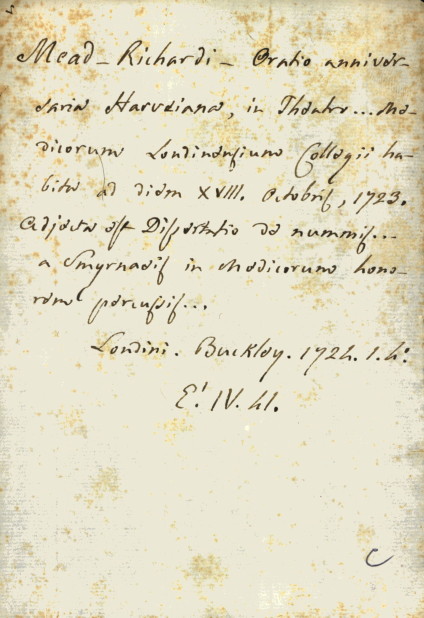 Mead - Richardi - Oratio anniver-
saria Harveiana, in Theatro... Me-
dicorum Londinensium Collegii ha-
bita ad diem XVIII. Octobris, 1723.
Adjecta est Dissertatio de nummis...
a Smyrnaeis in Medicorum hono-
rem percussis...
Londini. Buckley. 1724. 1. 4°.
E! IV. 41.
C